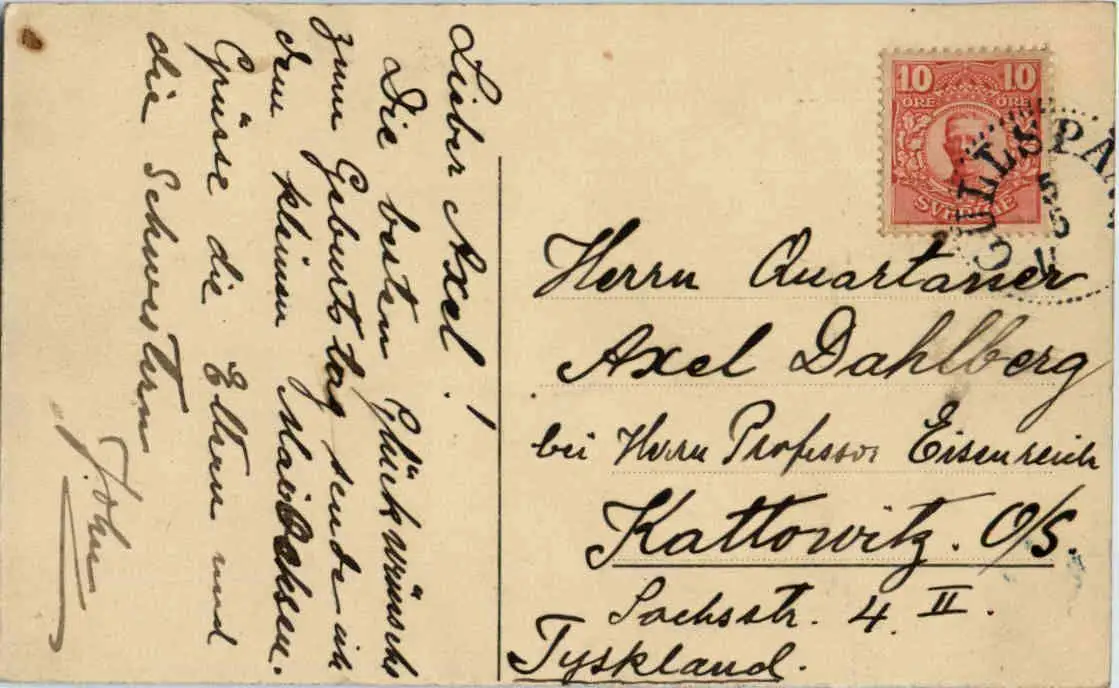 Lieber Axel!
Die besten Glückwünsche
zum Geburtstag sende ich
dem kleinen Maiochsen.
Grüsse die Eltern und
die Schwestern
John
10 10
ÖRE ÖRE
SVERIGE
GULLSPÅ
Herrn Quartaner
Axel Dahlberg
bei Herrn Professor Eisenreich
Kattowitz. O/S.
Sachsstr. 4. II.
Tyskland.